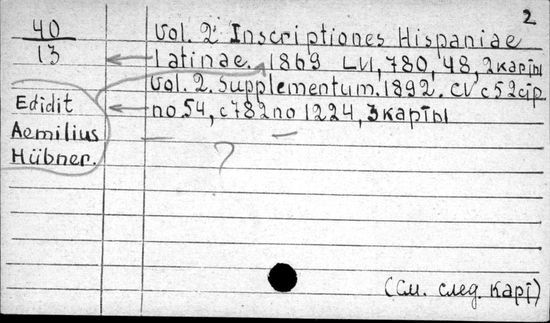 2
40
13
Vol. 2 Inscriptiones Hispaniae
latinae. 1869 LVI, 780, 48, 2 карты
Vol. 2. Supplementum. 1892. CV с 52 стр
no 54, с 782 по 1224, 3 карты
Edidit
Aemilius
Hübner.
?
(См. след. карт)